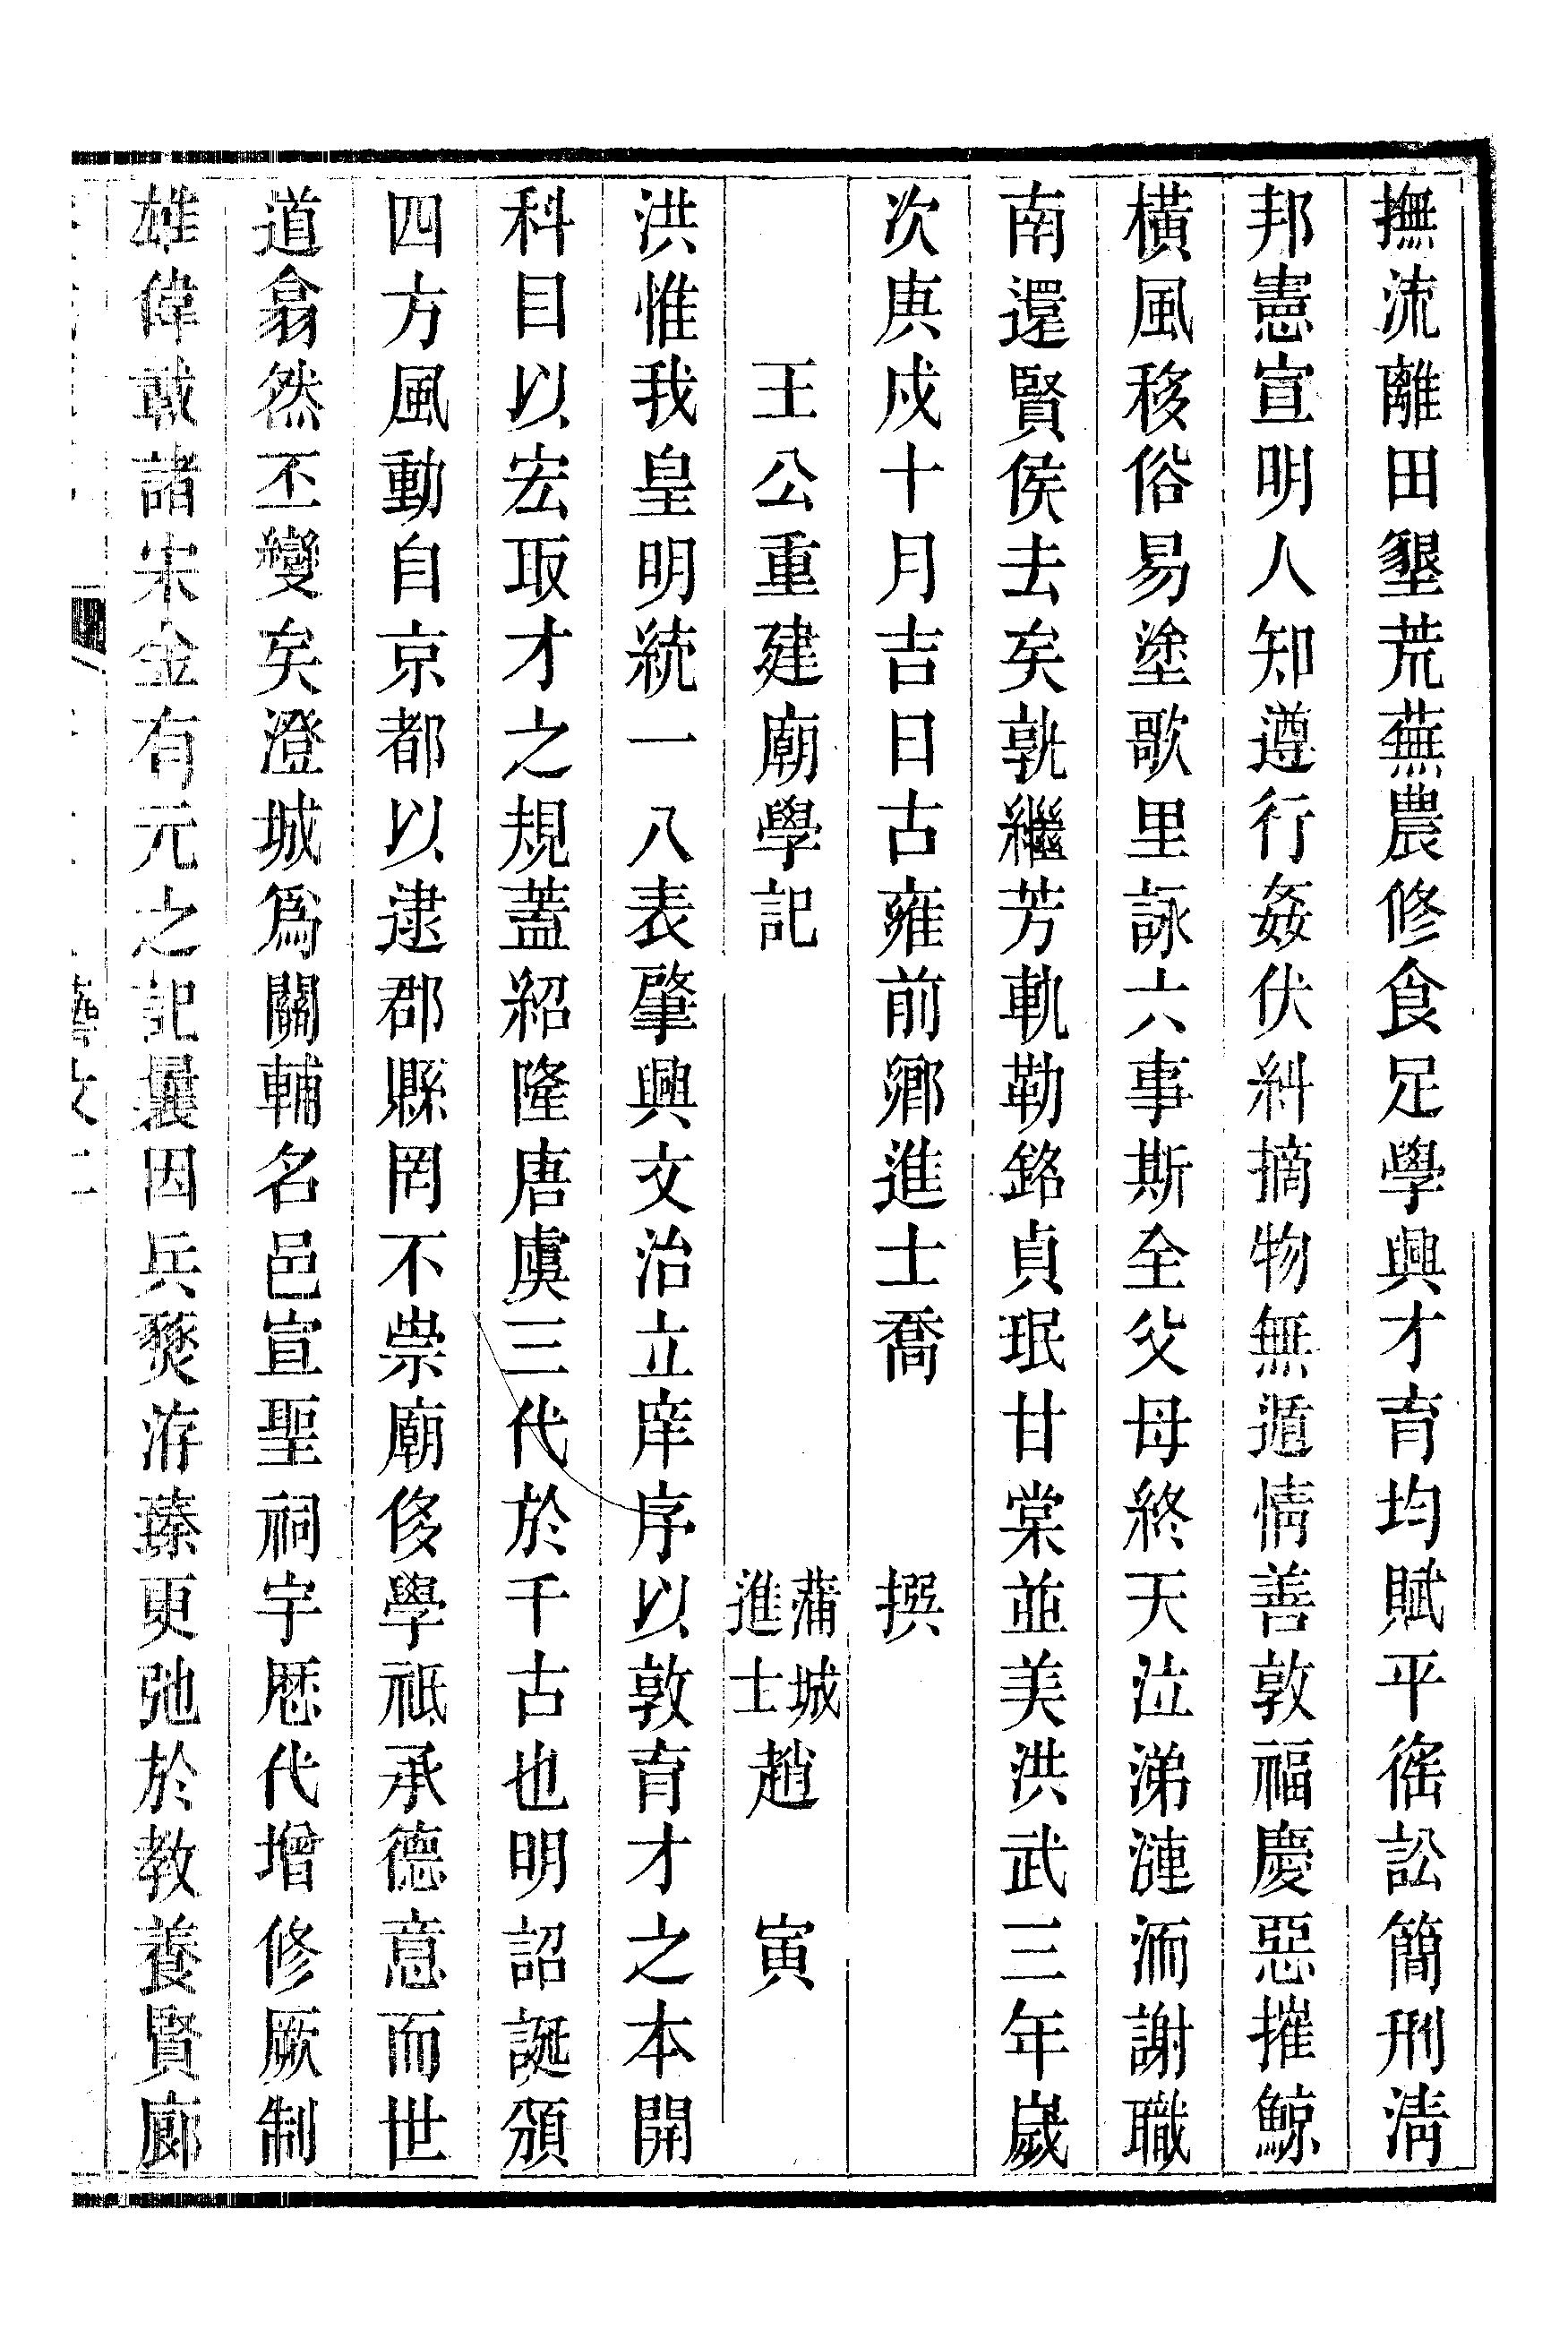 撫流離田墾荒蕪農修食足學興才育均賦平徭訟簡刑淸
邦憲宣明人知遵行姦伏糾摘物無遁情善敦福慶惡摧鯨
橫風移俗易塗歌里詠六事斯全父母終天泣涕漣洏謝職
南還賢侯去矣孰繼芳軌勒銘貞珉甘棠並美洪武三年歲
次庚戌十月吉日古雍前鄉進士喬　撰
王公重建廟學記　蒲城進士趙　寅
洪惟我皇明統一八表肇興文治立庠序以敦育才之本開
科目以宏取才之規蓋紹隆唐虞三代於千古也明詔誕頒
四方風動自京都以逮郡縣罔不崇廟修學祗承德意而世
道翕然丕變矣澄城爲關輔名邑宣聖祠宇歷代增修厥制
雄偉載諸宋金有元之記曩因兵燹洊臻更弛於教養賢廊
藝文二